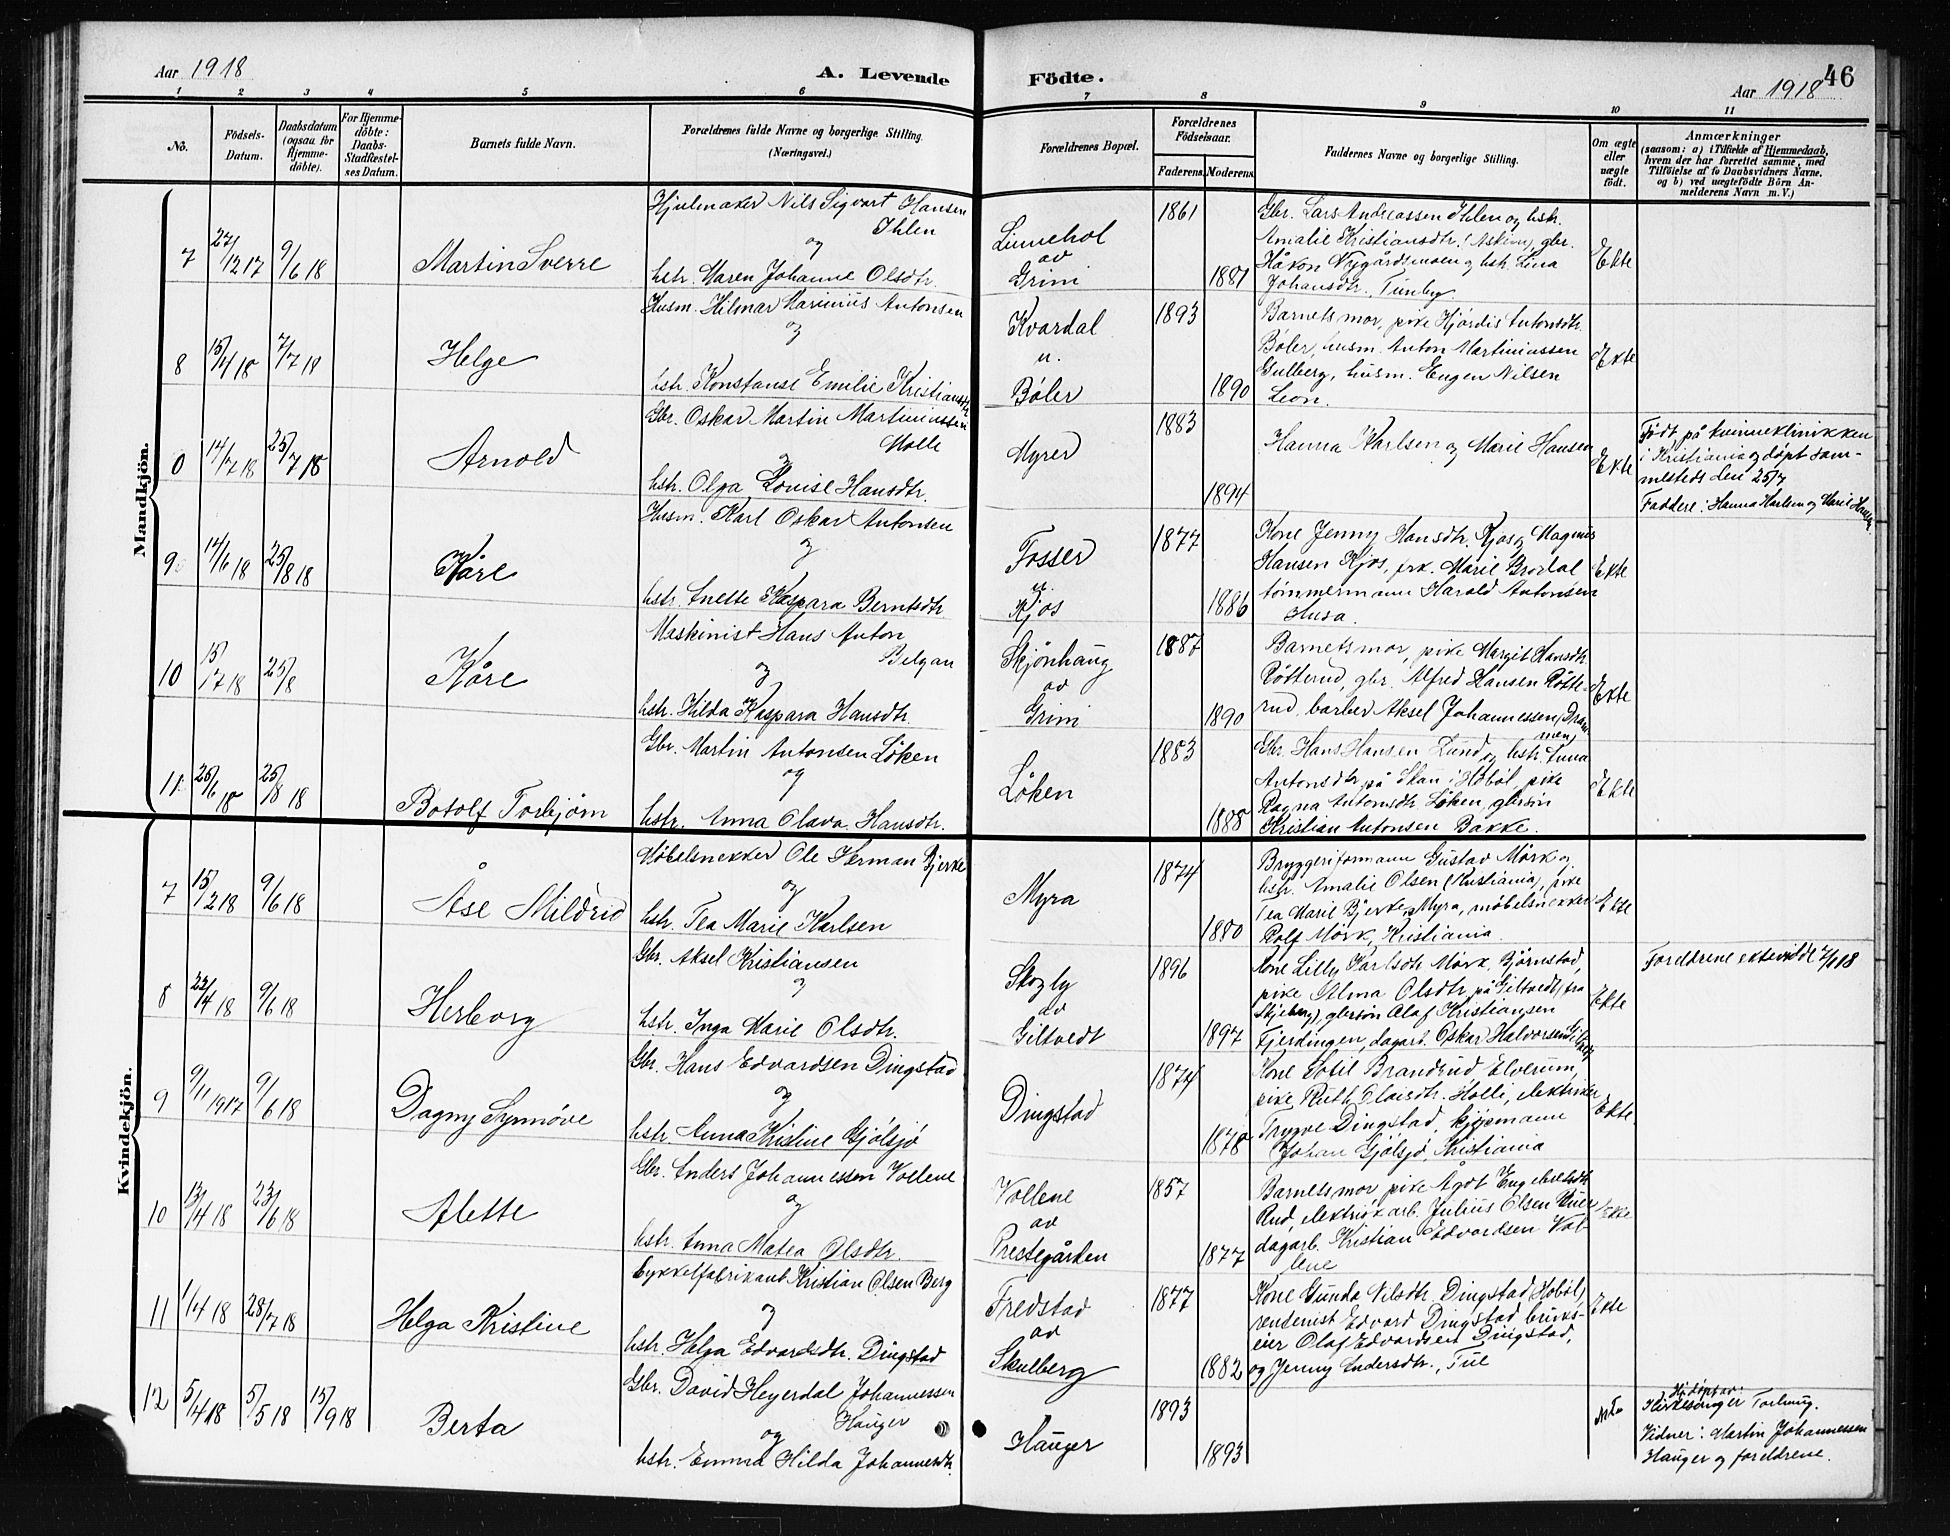 Aar 1918
A. Levende Födte.
46
Aar 1918
1 2 3 4 5 6 7 8 9 10 11
No.
Födsels-
Datum.
Daabsdatum
(ogsaa for
Hjemme-
döbte).
For Hjemme-
döbte:
Daabs-
Stadfæstel-
ses Datum.
Barnets fulde Navn.
Forældrenes fulde Navne og borgerlige Stilling.
(Næringsvei.)
Forældrenes Bopæl.
Forældrenes
Födselsaar.
Faderens. Moderens.
Faddernes Navne og borgerlige Stilling.
Om ægte
eller
uægte
födt.
Anmærkninger
(saasom: a) i Tilfælde af Hjemmedaab,
hvem der har forrettet samme, med
Tilföielse af to Daabsvidners Navne,
og b) ved uægtefödte Börn An-
melderens Navn m. V.)
Mandkjön.
7 27/12 17 9/6 18 Martin Sverre
Hjulmaker Nils Sigvart Hansen
Ihlen
og
hstr. Maren Johanne Olsdtr.
Linnehol
av
Grini
1861
1881
Gbr. Lars Andreassen Ihlen og hstr.
Amalie Kristiansdtr. (Askim), gbr.
Håkon Nygårdsmoen og hstr. Lina
Johansdtr. Tunby.
Ekte
8 15/4 18 7/7 18 Helge
Husm. Hilmar Marinius Antonsen
og
hstr. Konstanse Emilie Kristiansdtr
Kvardal
u.
Böler
1893
1890
Barnets mor, pike Hjördis Antonsdtr.
Böler, husm. Anton Martiniussen
Gulberg, husm. Eugen Nilsen
Leon.
Ekte
0 14/7 18 25/7 18 Arnold
Gbr. Oskar Martin Martiniussen
Molle
og
hstr. Olga Lovise Hansdtr.
Myrer
1883
1894
Hanna Karlsen og Marie Hansen
Ekte
Födt på kvinneklinikken
i Kristiania og döpt sam-
mesteds den 25/7
Faddere: Hanna Karlsen og Marie Hansen
9 14/6 18 25/8 18 Kåre
Husm. Karl Oskar Antonsen
og
hstr. Anette Kaspara Berntsdtr.
Fosser
u.
Kjos
1877
1886
Kone Jenny Hansdtr. Kjos, Magnus
Hansen Kjos, frk. Marie Brodal
tömmermann Harald Antonsen
Husa.
Ekte
10 15/7 18 25/8 Kåre
Maskinist Hans Anton
Belgan
og
hstr. Hilda Kaspara Hansdtr.
Skjönhaug
av
Grini
1887
1890
Barnets mor, pike Margit Hansdtr.
Rötterud, gbr. Alfred Hansen Rötte-
rud, barber Aksel Johannessen, Dram-
men
Ekte
11 26/6 18 25/8 18 Botolf Torbjörn
Gbr. Martin Antonsen Löken
og
hstr. Anna Olava Hansdtr.
Löken
1883
1888
Gbr. Hans Hansen Lund og hstr. Anna
Antonsdtr. på Skau i Hoböl, pike
Ragna Antonsdtr. Löken, gbrsön
Kristian Antonsen Bakke.
Ekte
Kvindekjön.
7 15/2 18 9/6 18 Åse Mildrid
Möbelsnekker Ole Herman Bjerke
og
hstr. Tea Marie Karlsen
Myra
1874
1880
Bryggeriformann Gustav Mörk og
hstr. Amalie Olsen (Kristiania), pike
Tea Marie Bjerke, Myra, möbelsnekker
Rolf Mörk, Kristiania.
Ekte
8 22/4 18 9/6 18 Herborg
Gbr. Aksel Kristiansen
og
hstr. Inga Marie Olsdtr.
Skogly
av
Giltvedt
1896
1897
Kone Lilly Karlsdtr. Mörk, Björnstad,
pike Alma Olsdtr. på Giltvedt, fra
Skjeberg), gbrsön Olaf Kristiansen
Fjerdingen, dagarb. Oskar Halvorsen
Ekte
Foreldrene ekteviddde
9 9/11 1917 9/6 18 Dagny Synnöve
Gbr. Hans Edvardsen Dingstad
og
hstr. Anna Kristine Gjölsjö
Dingstad
1874
1878
Kone Sofie Brandsrud Elverum,
pike Ruth Olaisdtr. Holli, elektriker
Trygve Dingstad, kjöpmann
Johan Gjölsjö, Kristiania
Ekte
10 13/4 18 23/6 18 Alette
Gbr. Anders Johannessen Vollene
og
hstr. Anna Matea Olsdtr.
Vollene
av
Prestegården
1857
1877
Barnets mor, pike Ågot Engebretsdtr.
Rud, elektrisk arb. Julius Olsen Ruer
dagarb. Kristian Edvardsen Vol-
lene
Ekte
11 1/4 18 28/7 18 Helga Kristine
Cykkelfabrikant Kristian Olsen Berg
og
hstr. Helga Edvardsdtr. Dingstad
Fredstad
av
Skulberg
1877
1882
Kone Gunda Nilsdtr. Dingstad (Hoböl),
rentenist Edvard Dingstad, bruks-
eier Olaf Edvardsen Dingstad,
og Jenny Andersdtr., Tue
Ekte
12 5/4 18 5/5 18 15/9 18 Berta
Gbr. David Heyerdal Johannessen
Hauger
og
hstr. Emma Hilda Johannesdtr.
Hauger
1893
1893
Ekte
Hj.döpt av:
Kirkesanger Forbung.
Vidner: Martin Johannessen
Hauger og foreldrene.